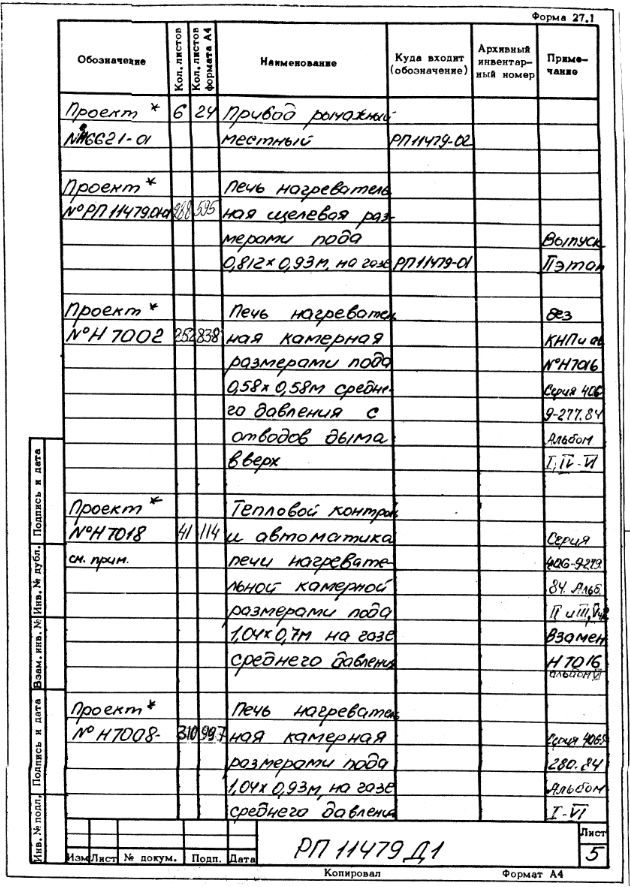 Форма 27.1
Обозначение Кол. листов Кол. листов формата А4 Наименование Куда входит (обозначение) Архивный инвентарный номер Примечание
Проект * 6 24 Привод рычажный
6621-01 местный РП11479-02
Проект * Печь нагреватель
№РП11479.01 288 595 ная щелевая раз-
мерами пода Выпуск
0,812×0,93м, на газе РП11479-01 II этап
Проект * Печь нагревател без
№Н7002 252 838 ная камерная КНПиав
размерами пода №Н7016
0,58×0,58м средне- Серия 406
го давления с 9-277.84
отводов дыма Альбом
вверх I, IV-VI
Проект * Тепловой контрол
№Н7018 41 114 и автоматика Серия
см. прим. печи нагревате- 406-9-279.
льной камерной 84. Альб.
размерами пода II и III,
1,04×0,7м на газе Взамен
среднего давления Н7016
альбом VI
Проект * Печь нагревател
№Н7008- 310 997 ная камерная Серия 4069
размерами пода 280.84
1,04×0,93м, на газе Альбом
среднего давления I-VI
Инв. № подл. Подпись и дата Взам. инв. № Инв. № дубл. Подпись и дата
Изм Лист № докум. Подп. Дата
РП 11479 Д1
Лист
5
Копировал Формат А4